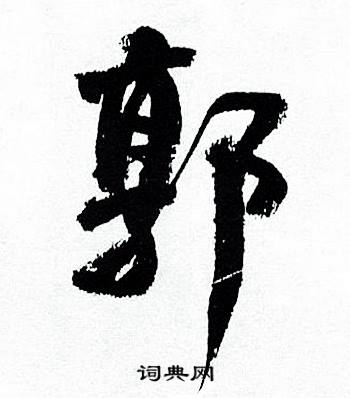 郭
词典网